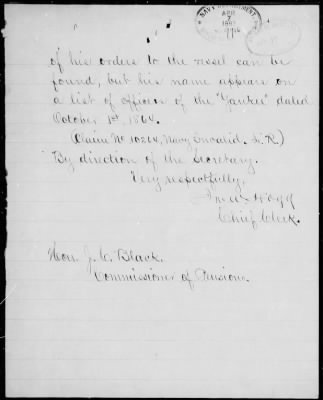 NAVY DEPARTMENT
APR
7
of his orders to the vessel can be
found, but his name appears on
a list of officers of the "Yankee" dated
October 1st 1864.
(Claim No 10264, Navy Invalid.
By direction of the Secretary.
Very respectfully,
Chief Clerk.
Hon. J. C. Black.
Commissioner of Pensions.